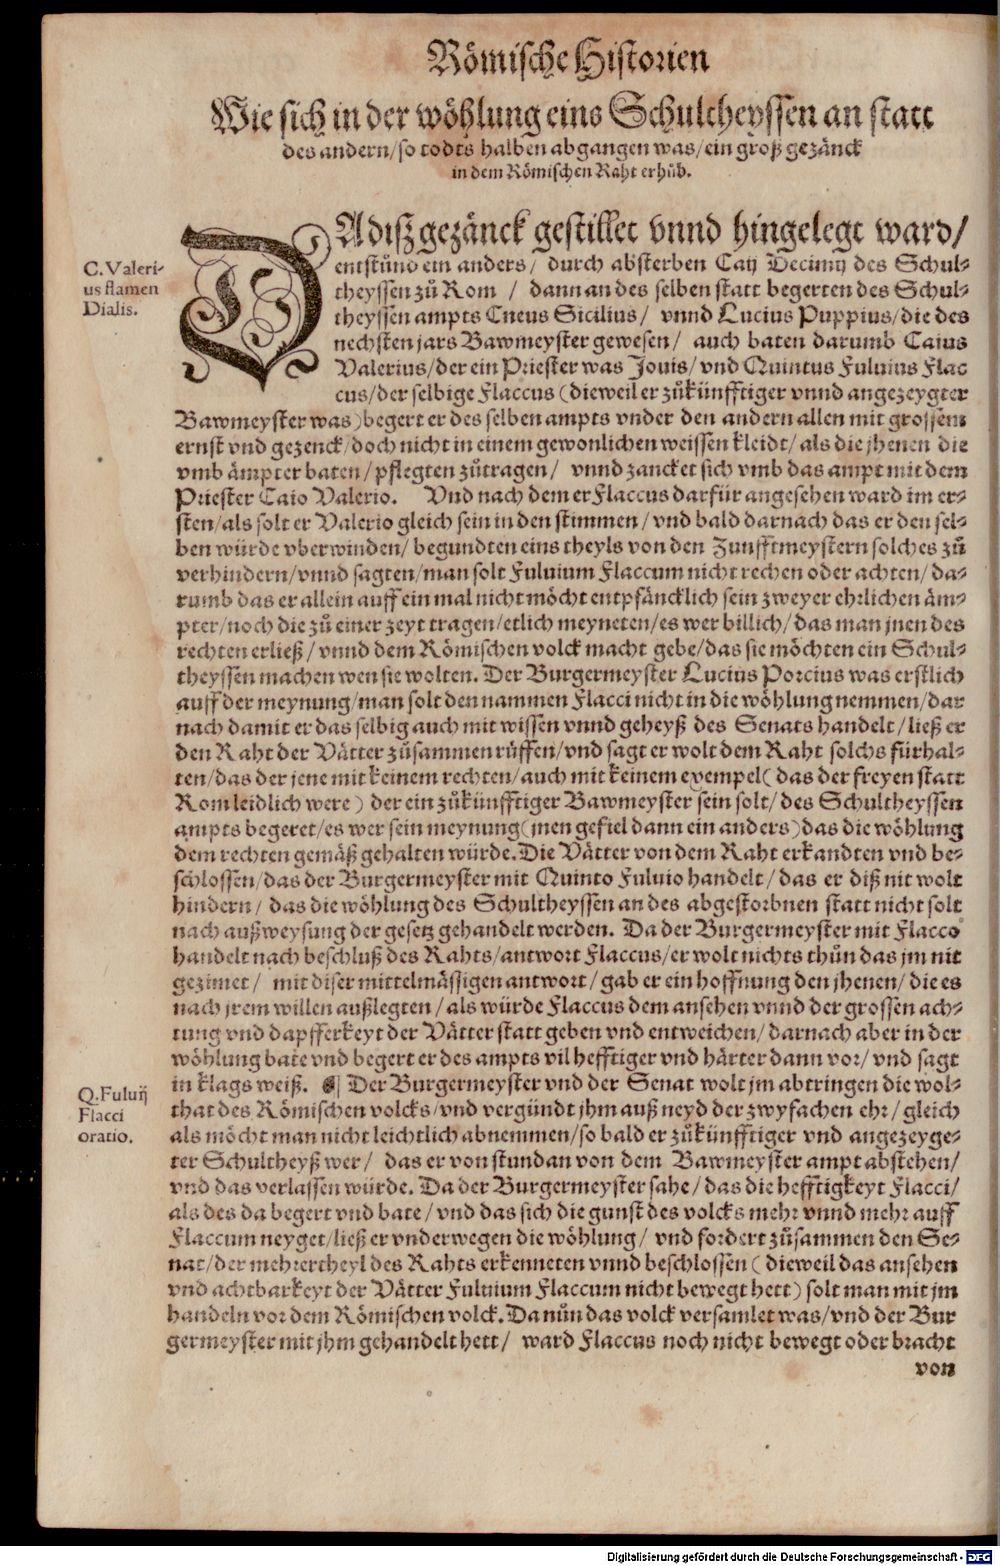 Römische Historien
Wie sich in der wöhlung eins Schultheyssen an statt
des andern/so todts halben abgangen was/ein groß gezänck
in dem Römischen Raht erhůb.
DA disz gezänck gestillet vnnd hingelegt ward/
C. Valeri-
us flamen
Dialis.
entstůnd ein anders/ durch absterben Caij Decimij des Schul-
theyssen zů Rom / dann an des selben statt begerten des Schul-
theyssen ampts Cneus Sicilius/ vnnd Lucius Puppius/die des
nechsten jars Bawmeyster gewesen/ auch baten darumb Caius
Valerius/der ein Priester was Jouis/vnd Quintus Fuluius Flac
cus/der selbige Flaccus (dieweil er zůkünfftiger vnnd angezeygter
Bawmeyster was)begert er des selben ampts vnder den andern allen mit grossem
ernst vnd gezenck/doch nicht in einem gewonlichen weissen kleidt/als die jhenen die
vmb ämpter baten/pflegten zůtragen/ vnnd zancket sich vmb das ampt mit dem
Priester Caio Valerio. Vnd nach dem er Flaccus darfür angesehen ward im er-
sten/als solt er Valerio gleich sein in den stimmen/vnd bald darnach das er den sel-
ben würde vberwinden/begundten eins theyls von den Zunfftmeystern solches zů
verhindern/vnnd sagten/man solt Fuluium Flaccum nicht rechen oder achten/da-
rumb das er allein auff ein mal nicht möcht entpfäncklich sein zweyer ehrlichen äm-
pter/noch die zů einer zeyt tragen/etlich meyneten/es wer billich/das man jnen des
rechten erließ/vnnd dem Römischen volck macht gebe/das sie möchten ein Schul-
theyssen machen wen sie wolten. Der Burgermeyster Lucius Porcius was erstlich
auff der meynung/man solt den nammen Flacci nicht in die wöhlung nemmen/dar
nach damit er das selbig auch mit wissen vnnd geheyß des Senats handelt/ließ er
den Raht der Vätter zůsammen rüffen/vnd sagt er wolt dem Raht solchs fürhal-
ten/das der jene mit keinem rechten/auch mit keinem exempel(das der freyen statt
Rom leidlich were) der ein zůkünfftiger Bawmeyster sein solt/des Schultheyssen
ampts begeret/es wer sein meynung(jnen gefiel dann ein anders)das die wöhlung
dem rechten gemäß gehalten würde. Die Vätter von dem Raht erkandten vnd be-
schlossen/das der Burgermeyster mit Quinto Fuluio handelt/das er diß nit wolt
hindern/das die wöhlung des Schultheyssen an des abgestorbnen statt nicht solt
nach außweysung der gesetz gehandelt werden. Da der Burgermeyster mit Flacco
handelt nach beschluß des Rahts/antwort Flaccus/er wolt nichts thůn das jm nit
gezimet/ mit diser mittelmässigen antwort/gab er ein hoffnung den jhenen/die es
nach jrem willen außlegten/als würde Flaccus dem ansehen vnnd der grossen ach-
tung vnd dapfferkeyt der Vätter statt geben vnd entweichen/darnach aber in der
wöhlung bate vnd begert er des ampts vil hefftiger vnd härter dann vor/vnd sagt
Q. Fuluij
Flacci
oratio.
in klags weiß. Der Burgermeyster vnd der Senat wolt jm abtringen die wol-
that des Römischen volcks/vnd vergündt jhm auß neyd der zwyfachen ehr/gleich
als möcht man nicht leichtlich abnemmen/so bald er zůkünfftiger vnd angezeyge-
ter Schultheyß wer/ das er von stundan von dem Bawmeyster ampt abstehen/
vnd das verlassen würde. Da der Burgermeyster sahe/das die hefftigkeyt Flacci/
als des da begert vnd bate/vnd das sich die gunst des volcks mehr vnnd mehr auff
Flaccum neyget/ließ er vnderwegen die wöhlung/ vnd fordert zůsammen den Se-
nat/der mehrertheyl des Rahts erkenneten vnnd beschlossen(dieweil das ansehen
vnd achtbarkeyt der Vätter Fuluium Flaccum nicht bewegt hett) solt man mit jm
handeln vor dem Römischen volck. Da nůn das volck versamlet was/vnd der Bur
germeyster mit jhm gehandelt hett/ ward Flaccus noch nicht bewegt oder bracht
von
Digitalisierung gefördert durch die Deutsche Forschungsgemeinschaft - DFG